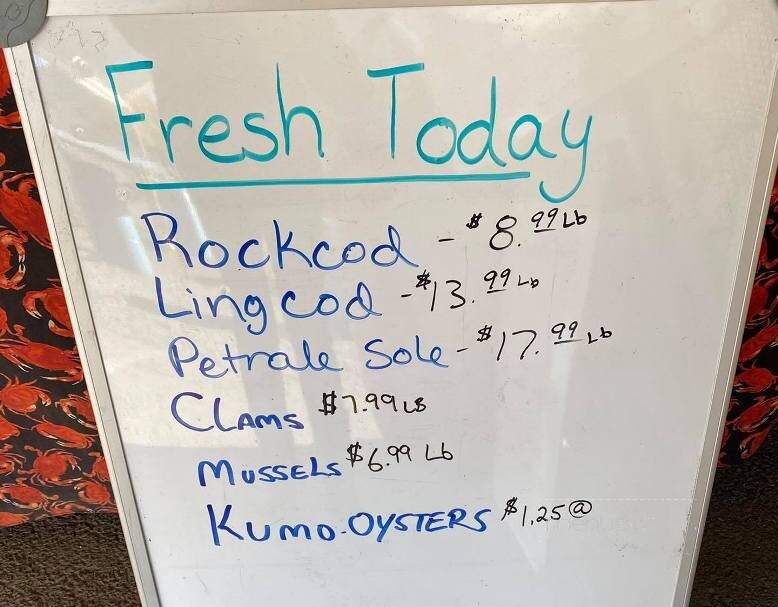 Fresh Today
Rockcod - $8.99 Lb
Lingcod - $13.99 Lb
Petrale Sole - $17.99 Lb
CLAMS $7.99 LB
MUSSELS $6.99 Lb
KUMO-OYSTERS $1.25 @